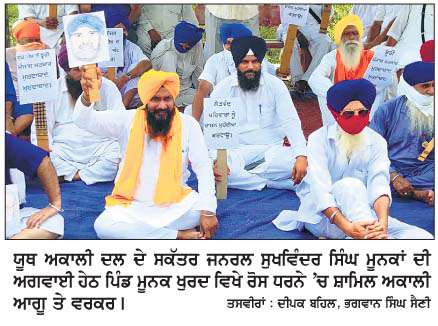 ਯੂਥ ਅਕਾਲੀ ਦਲ ਦੇ ਸਕੱਤਰ ਜਨਰਲ ਸੁਖਵਿੰਦਰ ਸਿੰਘ ਮੂਨਕਾਂ ਦੀ
ਅਗਵਾਈ ਹੇਠ ਪਿੰਡ ਮੂਨਕ ਖੁਰਦ ਵਿਖੇ ਰੋਸ ਧਰਨੇ 'ਚ ਸ਼ਾਮਿਲ ਅਕਾਲੀ
ਆਗੂ ਤੇ ਵਰਕਰ।
ਤਸਵੀਰਾਂ : ਦੀਪਕ ਬਹਿਲ, ਭਗਵਾਨ ਸਿੰਘ ਸੈਣੀ